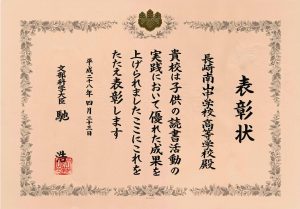 表彰状
長崎南山中学校・高等学校殿
貴校は子供の読書活動の
実践において優れた成果を
上げられましたここにこれを
たたえ表彰します
平成二十八年四月二十三日
文部科学大臣 馳 浩